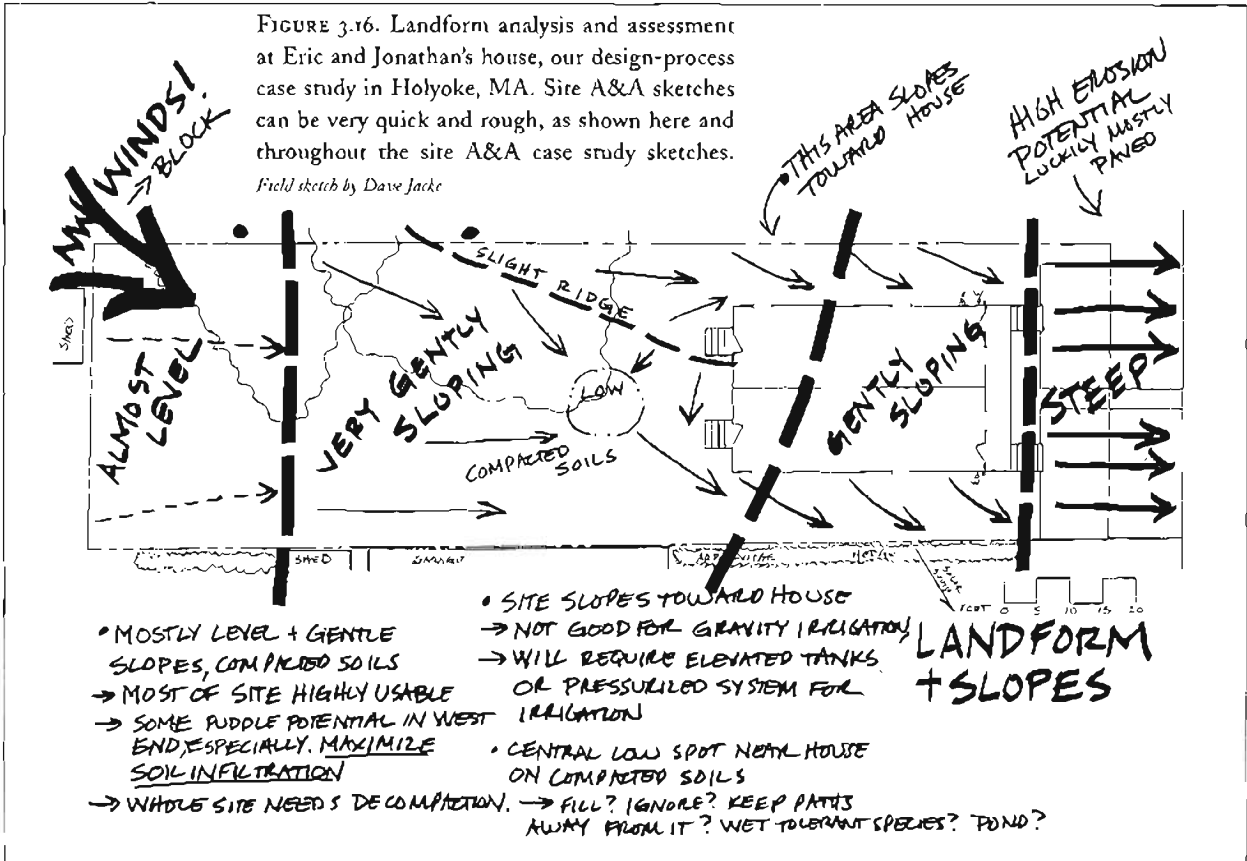 FIGURE 3.16. Landform analysis and assessment
at Eric and Jonathan's house, our design-process
case study in Holyoke, MA. Site A&A sketches
can be very quick and rough, as shown here and
throughout the site A&A case study sketches.
Field sketch by Dave Jacke
WINDS!
→ BLOCK
• THIS AREA SLOPES
TOWARD HOUSE
HIGH EROSION
POTENTIAL
LUCKILY MOSTLY
PAVED
SHED
ALMOST
LEVEL
VERY GENTLY
SLOPING
SLIGHT RIDGE
LOW
COMPACTED
SOILS
GENTLY
SLOPING
STEEP
SHED
FEET 0 5 10 15 20
LANDFORM
+ SLOPES
• MOSTLY LEVEL + GENTLE
SLOPES, COMPACTED SOILS
→ MOST OF SITE HIGHLY USABLE
→ SOME PUDDLE POTENTIAL IN WEST
END, ESPECIALLY. MAXIMIZE
SOIL INFILTRATION
→ WHOLE SITE NEEDS DECOMPACTION.
• SITE SLOPES TOWARD HOUSE
→ NOT GOOD FOR GRAVITY IRRIGATION,
→ WILL REQUIRE ELEVATED TANKS
OR PRESSURIZED SYSTEM FOR
IRRIGATION
• CENTRAL LOW SPOT NEAR HOUSE
ON COMPACTED SOILS
→ FILL? IGNORE? KEEP PATHS
AWAY FROM IT? WET TOLERANT SPECIES? POND?